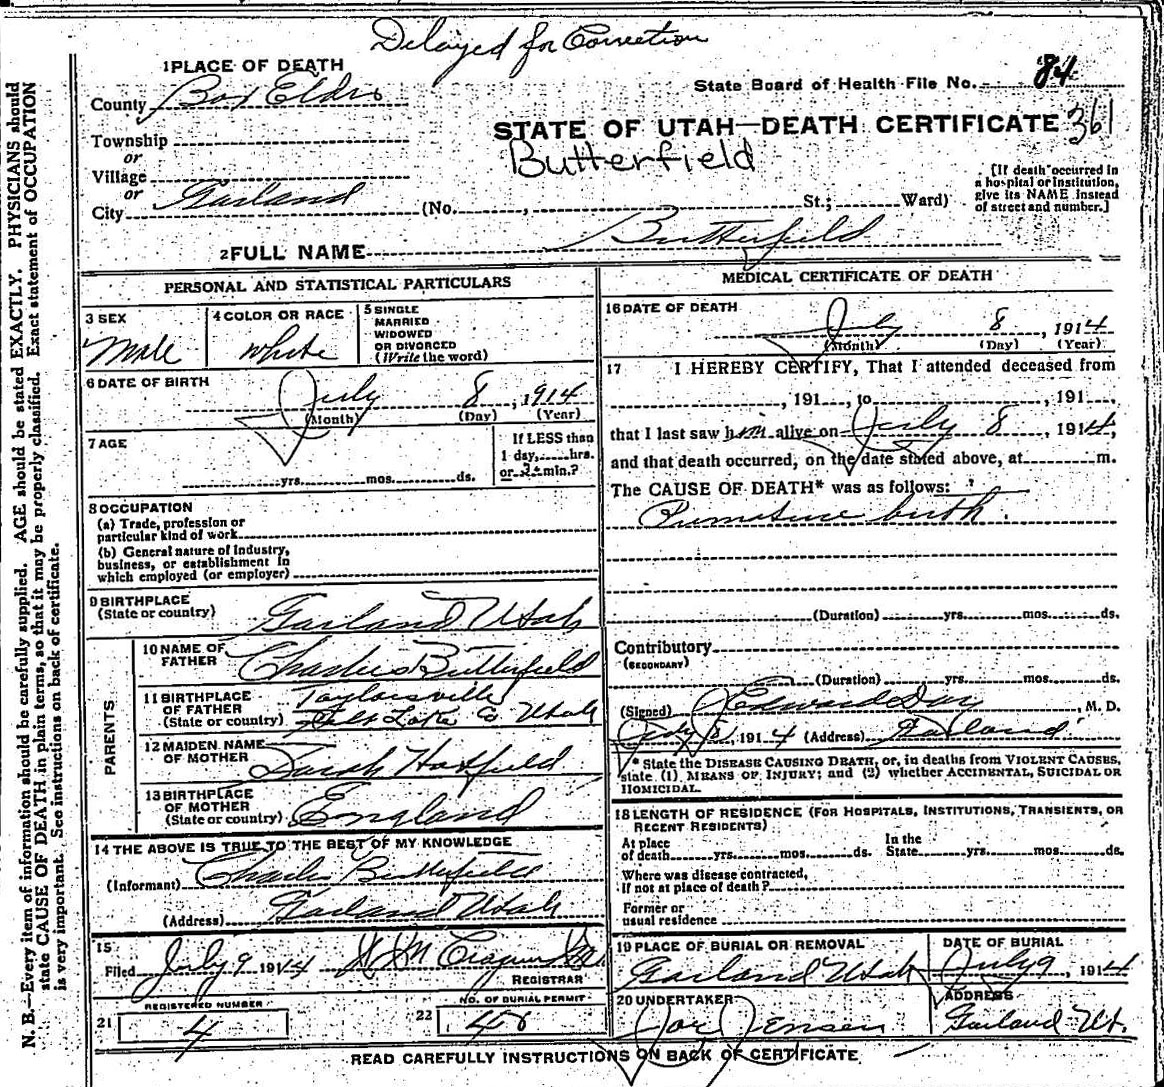 Delayed for Correction
1 PLACE OF DEATH
State Board of Health File No. 84
County Box Elder
STATE OF UTAH—DEATH CERTIFICATE 361
Township
or
Butterfield
Village
or
[If death occurred in
a hospital or institution,
give its NAME instead
of street and number.]
City Garland (No. , St.; Ward)
2 FULL NAME Butterfield
PERSONAL AND STATISTICAL PARTICULARS
3 SEX
Male
4 COLOR OR RACE
White
5 SINGLE
MARRIED
WIDOWED
OR DIVORCED
(Write the word)
6 DATE OF BIRTH
July 8, 1914
(Month) (Day) (Year)
7 AGE
yrs. mos. ds.
If LESS than
1 day, hrs.
or min.?
8 OCCUPATION
(a) Trade, profession or
particular kind of work
(b) General nature of industry,
business, or establishment in
which employed (or employer)
9 BIRTHPLACE
(State or country) Garland Utah
PARENTS
10 NAME OF
FATHER Charles Butterfield
11 BIRTHPLACE
OF FATHER
(State or country)
Taylorsville
Salt Lake Co Utah
12 MAIDEN NAME
OF MOTHER Sarah Hatfield
13 BIRTHPLACE
OF MOTHER
(State or country) England
14 THE ABOVE IS TRUE TO THE BEST OF MY KNOWLEDGE
(Informant) Charles Butterfield
(Address) Garland Utah
15
Filed July 9 1914
REGISTRAR
REGISTERED NUMBER
21 4
NO. OF BURIAL PERMIT
22
MEDICAL CERTIFICATE OF DEATH
16 DATE OF DEATH
July 8, 1914
(Month) (Day) (Year)
17 I HEREBY CERTIFY, That I attended deceased from
, 191 , to , 191 ,
that I last saw him alive on July 8, 1914,
and that death occurred, on the date stated above, at m.
The CAUSE OF DEATH* was as follows:
Premature birth.
(Duration) yrs. mos. ds.
Contributory
(SECONDARY)
(Duration) yrs. mos. ds.
(Signed) , M. D.
July 8, 1914 (Address) Garland
* State the DISEASE CAUSING DEATH, or, in deaths from VIOLENT CAUSES,
state (1) MEANS OF INJURY; and (2) whether ACCIDENTAL, SUICIDAL OR
HOMICIDAL.
18 LENGTH OF RESIDENCE (FOR HOSPITALS, INSTITUTIONS, TRANSIENTS, OR
RECENT RESIDENTS)
At place
of death yrs. mos. ds.
In the
State yrs. mos. ds.
Where was disease contracted,
If not at place of death?
Former or
usual residence
19 PLACE OF BURIAL OR REMOVAL
Garland Utah
DATE OF BURIAL
July 9, 1914
20 UNDERTAKER
Jos Jensen
ADDRESS
Garland Ut.
READ CAREFULLY INSTRUCTIONS ON BACK OF CERTIFICATE
N. B.—Every item of information should be carefully supplied. AGE should be stated EXACTLY. PHYSICIANS should
state CAUSE OF DEATH in plain terms, so that it may be properly classified. Exact statement of OCCUPATION
is very important. See instructions on back of certificate.